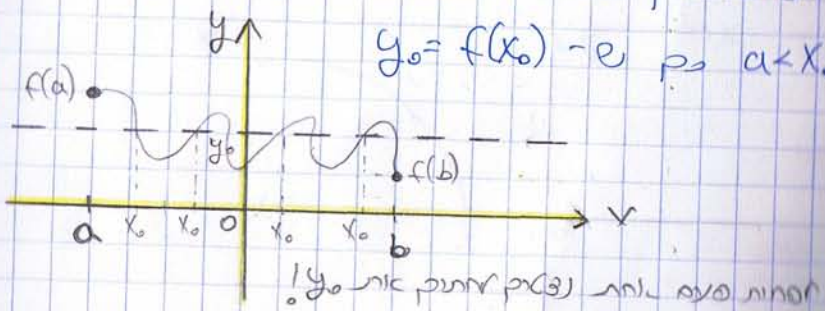 y₀ = f(x₀) -ש כך a<x
y
f(a)
y₀
f(b)
a x₀ x₀ 0 x₀ x₀ b x
לפחות פעם אחת נצטרך לחתוך את y₀!